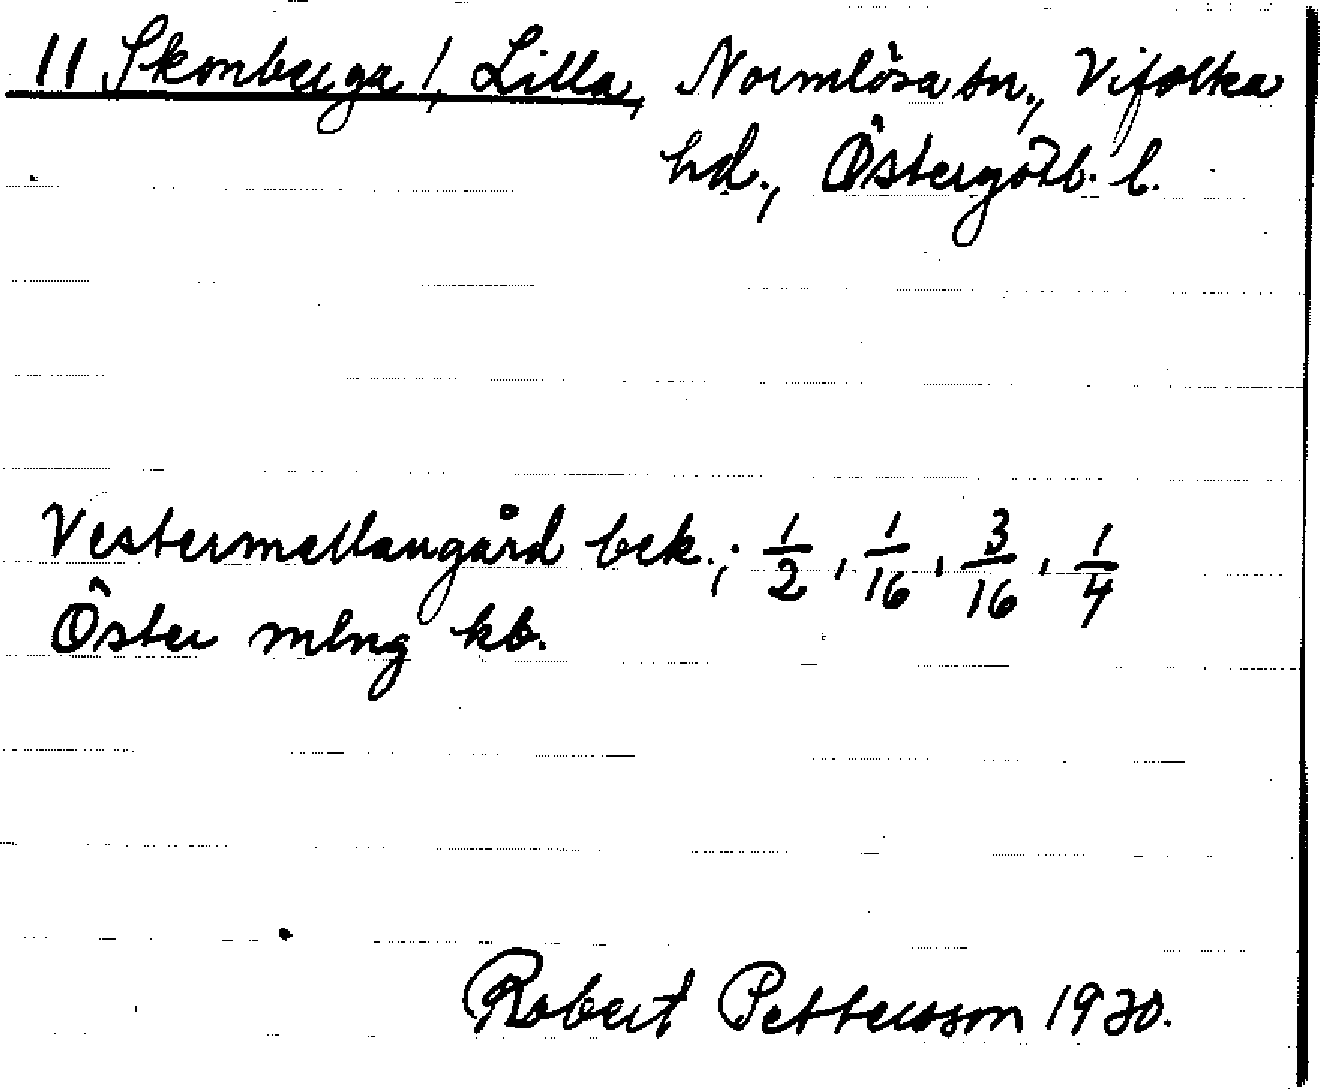 11 Skonberga 1, Lilla, Normlösa sn., Vifolka
hd., Östergötl. l.
Vestermellangård bek.; 1/2, 1/16, 3/16, 1/4
Öster mlng kb.
Robert Pettersson 1930.